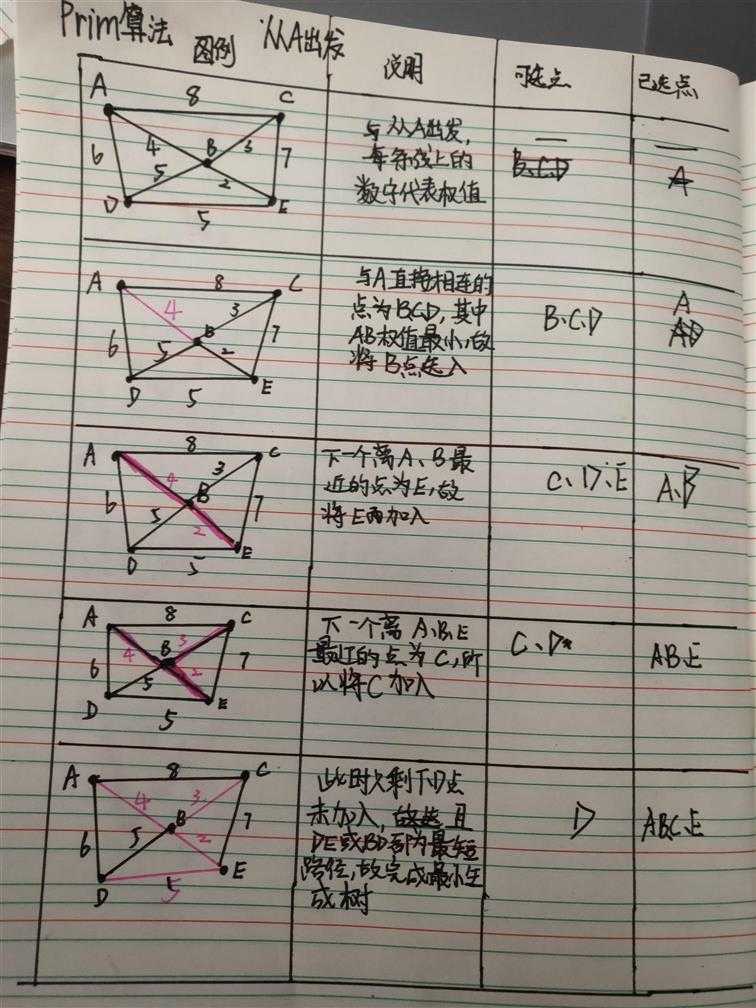 Prim算法 图例 从A出发
说明
可选点
已选点
A 8 C
6 4 B 3 7
5 2
D 5 E
与从A出发,
每条线上的
数字代表权值
—
B.C.D
—
A
A 8 C
4 3
6 B 7
5 2
D 5 E
与A直接相连的
点为BCD,其中
AB权值最小,故
将B点选入
B.C.D
A
AD
A 8 C
4 3
6 B 7
5 2
D 5 E
下一个离A、B最
近的点为E,故
将E再加入
C、D、E
A、B
A 8 C
B 3
6 4 7
5 2
D 5 E
下一个离A、B、E
最近的点为C,所
以将C加入
C、D
AB、E
A 8 C
4 3
6 5 B 7
2
D 5 E
此时只剩下D点
未加入,故选且
DE或BD否为最短
路径,故完成最小生
成树
D
ABC、E